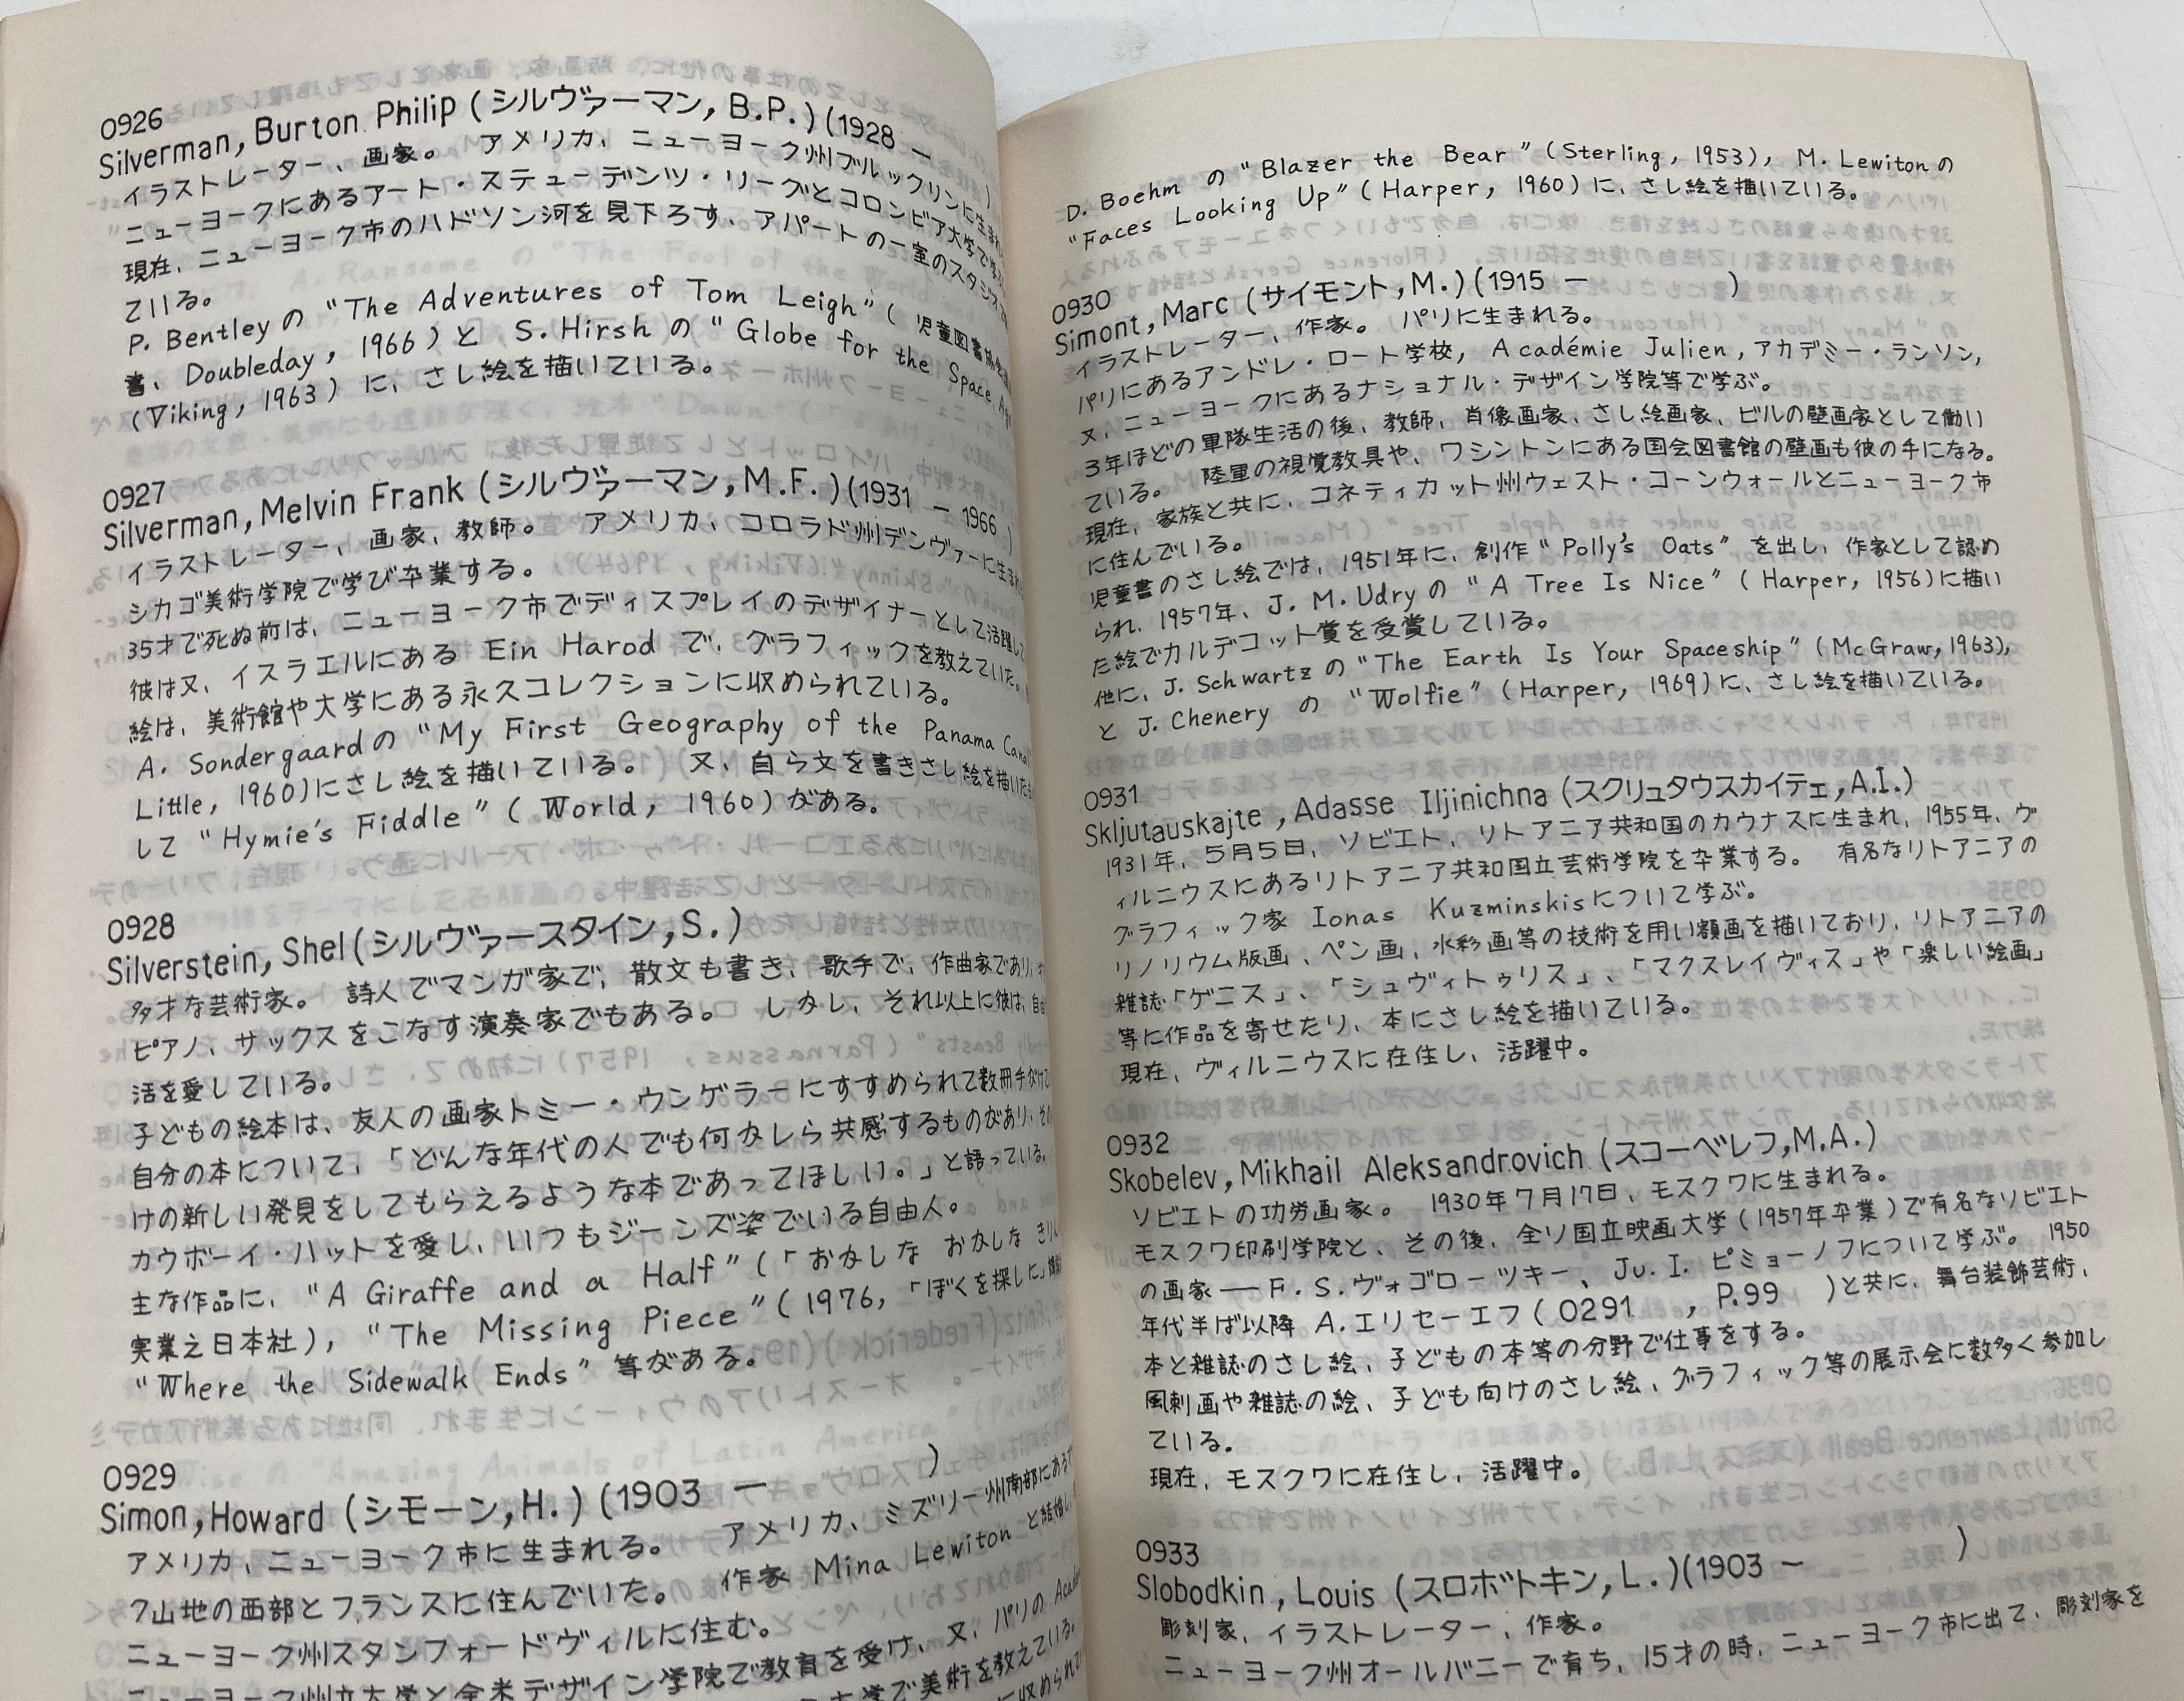 0926
Silverman, Burton Philip (シルヴァーマン, B.P.) (1928 — )
イラストレーター、画家。 アメリカ、ニューヨーク州ブルックリンに生まれ
ニューヨークにあるアート・ステューデンツ・リーグとコロンビア大学で学
現在、ニューヨーク市のハドソン河を見下ろす、アパートの一室のスタジオで
ている。
P. Bentleyの “The Adventures of Tom Leigh” ( 児童図書
書、Doubleday, 1966 ) と S. Hirsh の “Globe for the Space Age
(Viking, 1963 ) に、さし絵を描いている。
0927
Silverman, Melvin Frank (シルヴァーマン, M.F.) (1931 — 1966 )
イラストレーター、画家、教師。 アメリカ、コロラド州デンヴァーに生まれ
シカゴ美術学院で学び卒業する。
35才で死ぬ前は、ニューヨーク市でディスプレイのデザイナーとして活躍して
彼は又、イスラエルにある Ein Harod で、グラフィックを教えていた。
絵は、美術館や大学にある永久コレクションに収められている。
A. Sondergaardの “My First Geography of the Panama Canal
Little, 1960)にさし絵を描いている。 又、自ら文を書きさし絵を描いたも
して “Hymie's Fiddle” ( World, 1960 ) がある。
0928
Silverstein, Shel (シルヴァースタイン, S.)
多才な芸術家。 詩人でマンガ家で、散文も書き、歌手で、作曲家であり、
ピアノ、サックスをこなす演奏家でもある。 しかし、それ以上に彼は、自由
活を愛している。
子どもの絵本は、友人の画家トミー・ウンゲラーにすすめられて数冊手がけて
自分の本について、「どんな年代の人でも何かしら共感するものがあり、その
けの新しい発見をしてもらえるような本であってほしい。」と語っている。
カウボーイ・ハットを愛し、いつもジーンズ姿でいる自由人。
主な作品に、“A Giraffe and a Half” (「おかしな おかしな きりん
実業之日本社), “The Missing Piece” ( 1976, 「ぼくを探しに」
“Where the Sidewalk Ends” 等がある。
0929
Simon, Howard (シモーン, H.) (1903 — )
アメリカ、ニューヨーク市に生まれる。 アメリカ、ミズリー州南部にある
ク山地の西部とフランスに住んでいた。 作家 Mina Lewiton と結婚し、
ニューヨーク州スタンフォードヴィルに住む。
ニューヨーク州立大学と全米デザイン学院で教育を受け、又、パリの Acade
大学で美術を教えている。
に収められて
D. Boehm の “Blazer the Bear” (Sterling, 1953), M. Lewitonの
“Faces Looking Up” ( Harper, 1960 ) に、さし絵を描いている。
0930
Simont, Marc (サイモント, M.) (1915 — )
イラストレーター、作家。 パリに生まれる。
パリにあるアンドレ・ロート学校, Académie Julien, アカデミー・ランソン,
又、ニューヨークにあるナショナル・デザイン学院等で学ぶ。
3年ほどの軍隊生活の後、教師、肖像画家、さし絵画家、ビルの壁画家として働い
ている。 陸軍の視覚教具や、ワシントンにある国会図書館の壁画も彼の手になる。
現在、家族と共に、コネティカット州ウェスト・コーンウォールとニューヨーク市
に住んでいる。
児童書のさし絵では、1951年に、創作 “Polly's Oats” を出し、作家として認め
られ、1957年、J. M. Udry の “A Tree Is Nice” ( Harper, 1956 ) に描い
た絵でカルデコット賞を受賞している。
他に、J. Schwartz の “The Earth Is Your Spaceship” (McGraw, 1963),
と J. Chenery の “Wolfie” (Harper, 1969) に、さし絵を描いている。
0931
Skljutauskajte, Adasse Iljinichna (スクリュタウスカイテェ, A.I.)
1931年、5月5日、ソビエト、リトアニア共和国のカウナスに生まれ、1955年、ヴ
ィルニウスにあるリトアニア共和国立芸術学院を卒業する。 有名なリトアニアの
グラフィック家 Ionas Kuzminskisについて学ぶ。
リノリウム版画、ペン画、水彩画等の技術を用い額画を描いており、リトアニアの
雑誌「ゲニス」、「シュヴィトゥリス」、「マクスレイヴィス」や「楽しい絵画」
等に作品を寄せたり、本にさし絵を描いている。
現在、ヴィルニウスに在住し、活躍中。
0932
Skobelev, Mikhail Aleksandrovich (スコーベレフ, M.A.)
ソビエトの功労画家。 1930年7月17日、モスクワに生まれる。
モスクワ印刷学院と、その後、全ソ国立映画大学 ( 1957年卒業 ) で有名なソビエト
の画家 — F. S. ヴォゴローツキー、Ju. I. ピミョーノフについて学ぶ。 1950
年代半ば以降 A.エリセーエフ ( 0291 , P.99 ) と共に、舞台装飾芸術、
本と雑誌のさし絵、子どもの本等の分野で仕事をする。
風刺画や雑誌の絵、子ども向けのさし絵、グラフィック等の展示会に数多く参加し
ている。
現在、モスクワに在住し、活躍中。
0933
Slobodkin, Louis (スロボトキン, L.) (1903 — )
彫刻家、イラストレーター、作家。
ニューヨーク州オールバニーで育ち、15才の時、ニューヨーク市に出て、彫刻家を